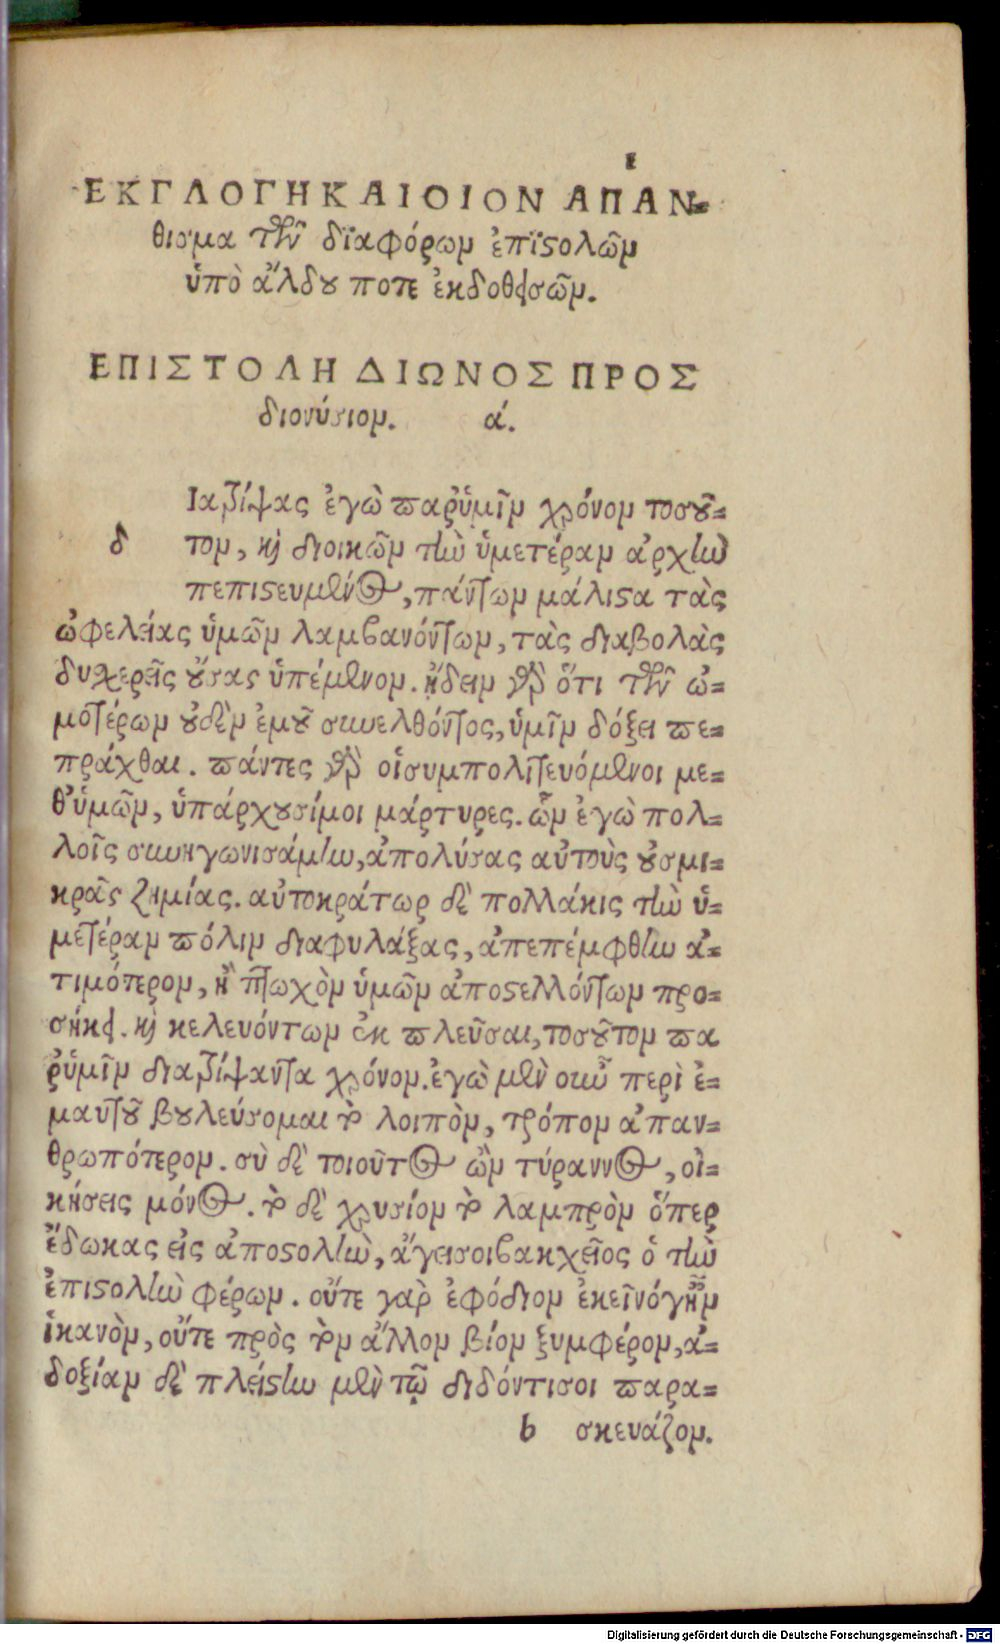 ε
ΕΚΓΛΟΓΗΚΑΙΟΙΟΝ ΑΠΑΝ=
θισμα τῶν διαφόρων ἐπιϛολῶν
ὑπὸ ἄλδου ποτε ἐκδοθεισῶν.
ΕΠΙΣΤΟΛΗ ΔΙΩΝΟΣ ΠΡΟΣ
διονύσιον. ά.
Ιατρίψας ἐγὼ παρ᾽ὑμῖν χρόνον τοσοῦ=
δ τον, καὶ διοικῶν τὴν ὑμετέραν ἀρχὴν
πεπιϛευμένος, πάντων μάλιϛα τὰς
ὠφελείας ὑμῶν λαμβανόντων, τὰς διαβολὰς
δυχερεῖς οὔσας ὑπέμενον. ᾔδειν γὰρ ὅτι τῶν ὠ=
μοτέρων οὐδὲν ἐμοῦ συνελθόντος, ὑμῖν δόξει πε=
πράχθαι. πάντες γὰρ οἱσυμπολιτευόμενοι με=
θ᾽ὑμῶν, ὑπάρχουσίμοι μάρτυρες. ὧν ἐγὼ πολ=
λοῖς συνηγωνισάμην, ἀπολύσας αὐτοὺς οὐσμι=
κρᾶς ζημίας. αὐτοκράτωρ δὲ πολλάκις τὴν ὑ=
μετέραν πόλιν διαφυλάξας, ἀπεπέμφθην ἀ=
τιμότερον, ἢ πτωχὸν ὑμῶν ἀποϛελλόντων προ=
σήκει. καὶ κελευόντων ἐκ πλεῦσαι, τοσοῦτον πα
ρ᾽ὑμῖν διατρίψαντα χρόνον. ἐγὼ μὲν οὖν περὶ ἐ=
μαυτοῦ βουλεύσομαι τὸ λοιπὸν, τρόπον ἀπαν=
θρωπότερον. σὺ δὲ τοιοῦτος ὢν τύραννος, οἰ=
κήσεις μόνος. τὸ δὲ χρυσίον τὸ λαμπρὸν ὅπερ
ἔδωκας εἰς ἀποϛολὴν, ἄγεισοιβακχεῖος ὁ τὴν
ἐπιϛολὴν φέρων. οὔτε γὰρ ἐφόδιον ἐκεῖνόγ᾽ἦν
ἱκανὸν, οὔτε πρὸς τὸν ἄλλον βίον ξυμφέρον, ἀ=
δοξίαν δὲ πλείϛην μὲν τῷ διδόντισοι παρα=
b σκευάζον.
Digitalisierung gefördert durch die Deutsche Forschungsgemeinschaft - DFG